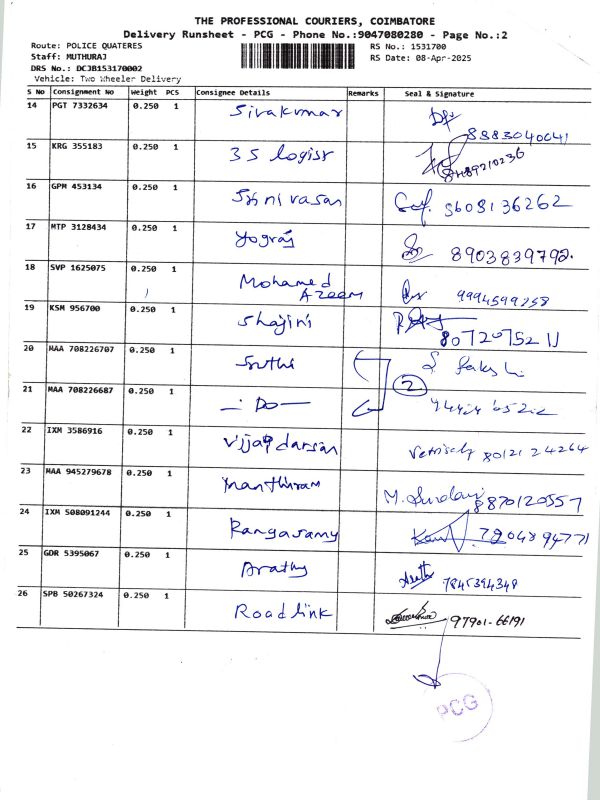 THE PROFESSIONAL COURIERS, COIMBATORE
Delivery Runsheet - PCG - Phone No.:9047080280 - Page No.:2
Route: POLICE QUATERES RS No.: 1531700
Staff: MUTHURAJ RS Date: 08-Apr-2025
DRS No.: DCJB153170002
Vehicle: Two Wheeler Delivery
S No Consignment No Weight PCS Consignee Details Remarks Seal & Signature
14 PGT 7332634 0.250 1 Sivakumar
8883040041
15 KRG 355183 0.250 1 3S logist
8489210236
16 GPM 453134 0.250 1 Srinivasan 9608136262
17 MTP 3128434 0.250 1 Yograj 8903839792.
18 SVP 1625075 0.250 1 Mohamed
Azeem 9994599258
19 KSM 956700 0.250 1 Shajini
8072075211
20 MAA 708226707 0.250 1 Sruthi
21 MAA 708226687 0.250 1 - Do - 2
22 IXM 3586916 0.250 1 Vijay darsan 8012124264
23 MAA 945279678 0.250 1 Mandhiram M. 8870120557
24 IXM 508091244 0.250 1 Rangasamy 7904894771
25 GDR 5395067 0.250 1 Arathy 7845394348
26 SPB 50267324 0.250 1 Roadlink 97901-66191
PCG